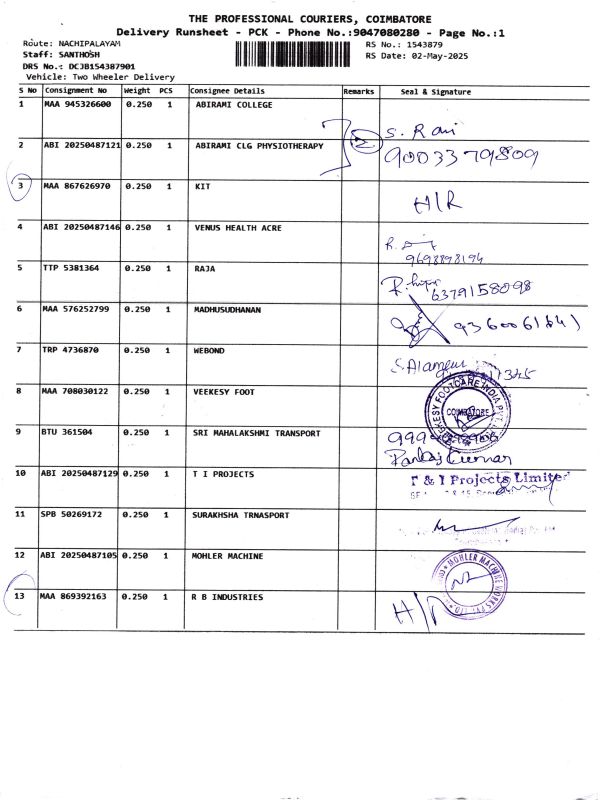 THE PROFESSIONAL COURIERS, COIMBATORE
Delivery Runsheet - PCK - Phone No.:9047080280 - Page No.:1
Route: NACHIPALAYAM
RS No.: 1543879
Staff: SANTHOSH
RS Date: 02-May-2025
DRS No.: DCJB154387901
Vehicle: Two Wheeler Delivery
S No Consignment No Weight PCS Consignee Details Remarks Seal & Signature
1 MAA 945326600 0.250 1 ABIRAMI COLLEGE
S. Rani
2 ABI 20250487121 0.250 1 ABIRAMI CLG PHYSIOTHERAPY 2
9003379809
3 MAA 867626970 0.250 1 KIT
H/R
4 ABI 20250487146 0.250 1 VENUS HEALTH ACRE
9698898194
5 TTP 5381364 0.250 1 RAJA
6379158098
6 MAA 576252799 0.250 1 MADHUSUDHANAN
7 TRP 4736870 0.250 1 WEBOND
8 MAA 708030122 0.250 1 VEEKESY FOOT
VEEKESY FOOTCARE INDIA PVT
COIMBATORE
9 BTU 361504 0.250 1 SRI MAHALAKSHMI TRANSPORT
Pankaj Kumar
10 ABI 20250487129 0.250 1 T I PROJECTS
T & I Projects Limited
11 SPB 50269172 0.250 1 SURAKHSHA TRNASPORT
12 ABI 20250487105 0.250 1 MOHLER MACHINE
MOHLER MACHINE WORKS PVT. LTD
13 MAA 869392163 0.250 1 R B INDUSTRIES